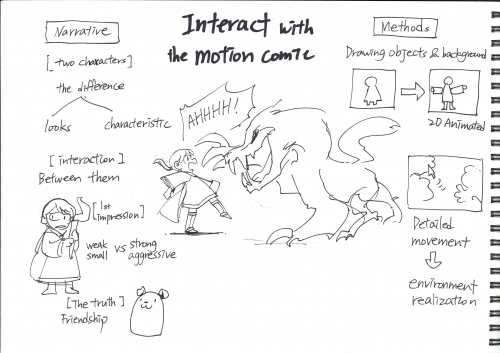 Interact with
the motion comic
Narrative
[two characters]
the difference
looks
characteristic
[interaction]
Between them
[1st
impression]
weak
small
vs
strong
aggressive
[The truth]
Friendship
AHHHH!
Methods
Drawing objects & background
2D Animated
Detailed
movement
environment
realization